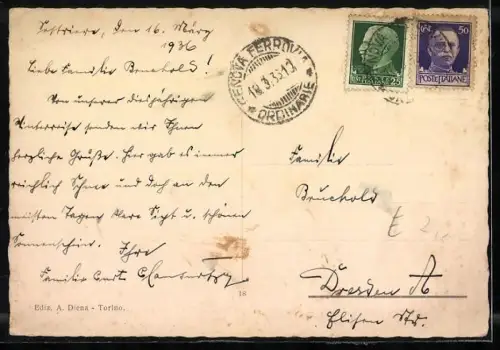 Sestriere, den 16. März
1936
Liebe Familie Bruchold!
Von unserer diesjährigen
Winterreise senden wir Ihnen
herzliche Grüße. Hier gab es immer
reichlich Schnee und doch an den
meisten Tagen klare Sicht u. schönen
Sonnenschein. Ihre
Familie Curt
Ediz. A. Diena - Torino.
18
GENOVA FERROVIA
ORDINARIE
25
50
POSTE ITALIANE
Familie
Bruchold
Dresden A
Elisen Str.